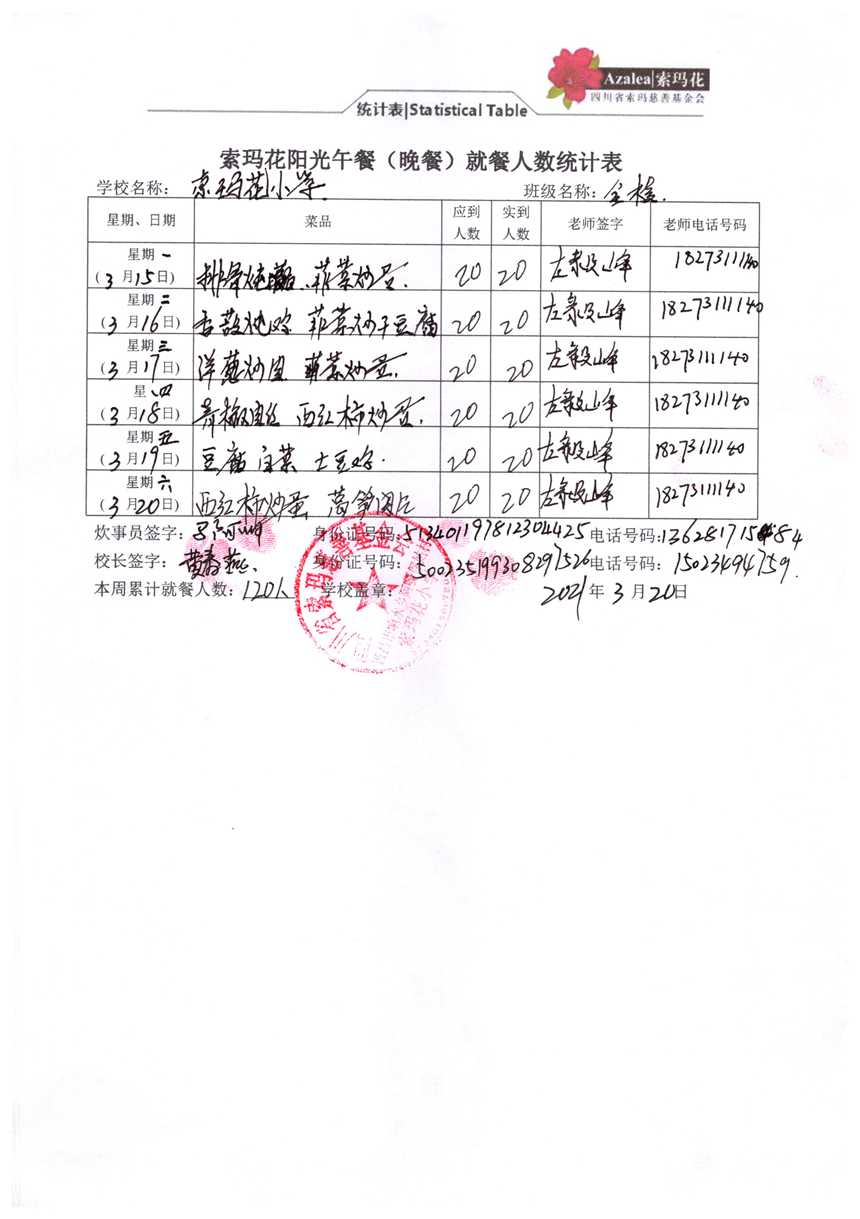 Azalea|索玛花
四川省索玛慈善基金会
统计表|Statistical Table
索玛花阳光午餐（晚餐）就餐人数统计表
学校名称： 索玛花小学 班级名称：全校.
星期、日期 菜品 应到人数 实到人数 老师签字 老师电话号码
星期一 (3月15日) 排骨炖 、菲菜炒蛋. 20 20 18273111140
星期二 (3月16日) 菲菜炒干豆腐 20 20 18273111140
星期三 (3月17日) 洋葱炒肉 菲菜炒蛋. 20 20 18273111140
星 四 (3月18日) 青椒肉丝 西红柿炒蛋. 20 20 18273111140
星期五 (3月19日) 豆腐 白菜 土豆 . 20 20 18273111140
星期六 (3月20日) 西红柿炒蛋 莴笋肉片 20 20 18273111140
炊事员签字： 身份证号码:513401197812304425 电话号码:
校长签字： 黄春燕. 身份证号码: 500235199308291526 电话号码: 15023494759.
本周累计就餐人数: 120人 学校盖章: 2021年3月20日